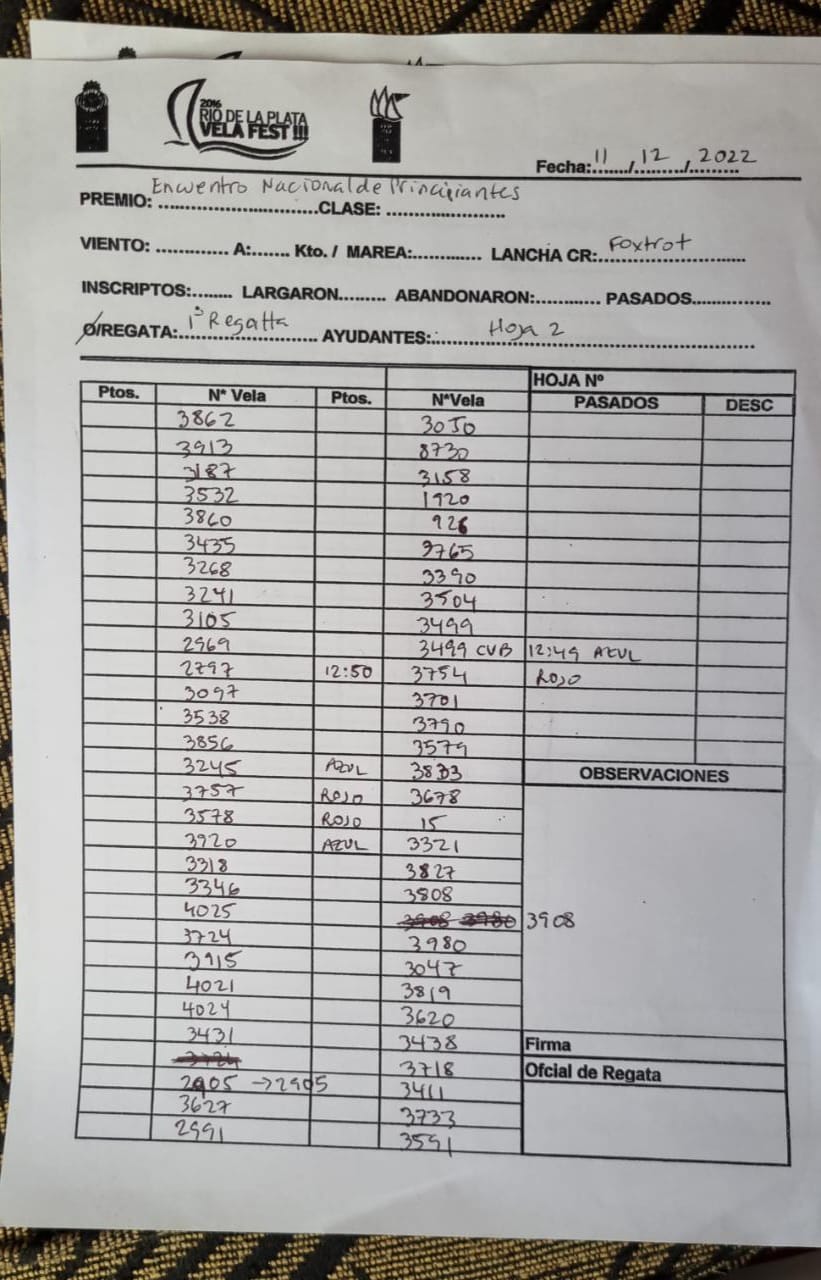 2016
RIO DE LA PLATA
VELA FEST !!!
Fecha: 11 / 12 / 2022
PREMIO: Encuentro Nacional de Principiantes CLASE: ........................
VIENTO: ............. A:....... Kto. / MAREA:............. LANCHA CR: Foxtrot
INSCRIPTOS:........ LARGARON......... ABANDONARON:............ PASADOS...............
Ø/REGATA: 1° Regatta AYUDANTES: Hoja 2
HOJA Nº
Ptos. N* Vela Ptos. N*Vela PASADOS DESC
3862 3050
3913 8730
3187 3158
3532 1920
3860 926
3435 3765
3268 3390
3241 3504
3105 3499
2969 3499 CUB 12:49 AZUL
2797 12:50 3754 ROJO
3097 3701
3538 3790
3856 3579
3245 AZUL 3833 OBSERVACIONES
3757 ROJO 3678
3578 ROJO 15
3920 AZUL 3321
3318 3827
3346 3808
4025 3908 3980 3908
3724 3980
3915 3047
4021 3819
4024 3620
3431 3438 Firma
3724 3718 Ofcial de Regata
2905 →2905 3411
3627 3733
2991 3591